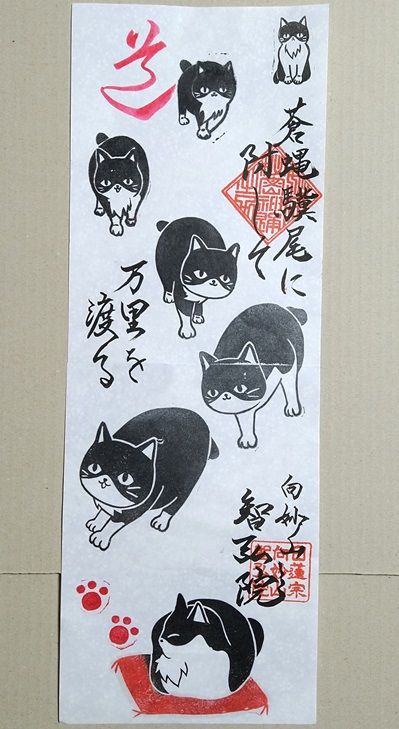 道
蒼蝿驥尾に
附して
万里を
渡る
向妙山
智弘院
日蓮宗
向妙山